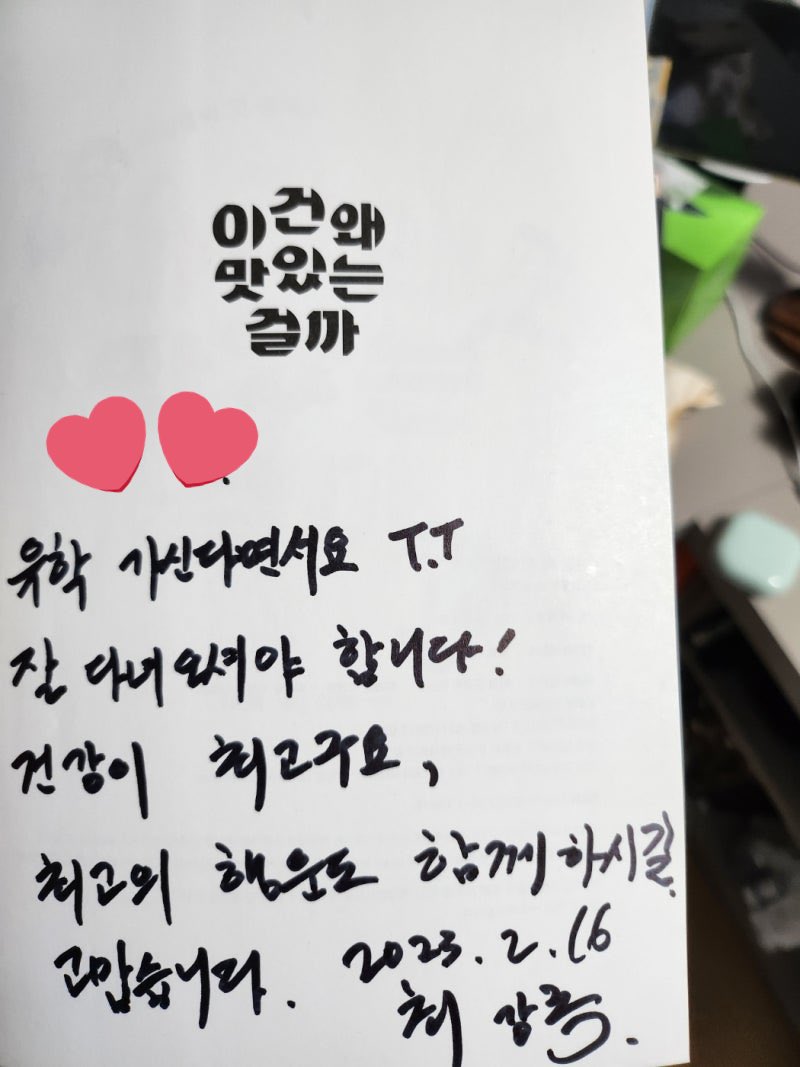 이건왜
맛있는
걸까
유학 가신다면서요 T.T
잘 다녀오셔야 합니다!
건강이 최고구요,
최고의 행운도 함께하시길.
고맙습니다. 2023.2.16
최강록.